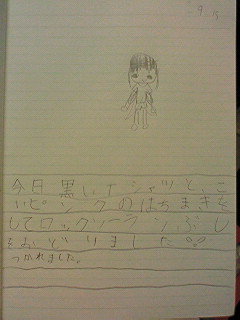 9.5
今日黒いTシャツと、こ
いピンクのはちまきを
してロックソーランぶし
をおどりました。
つかれました。